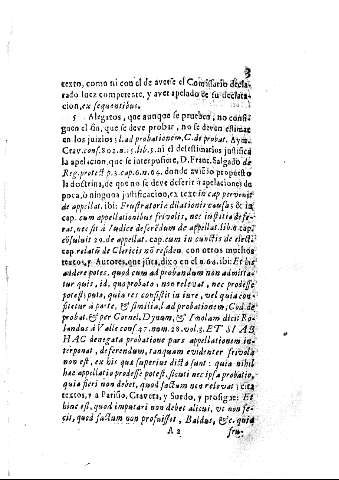 3
texto, como ni con el de averse el Comissario decla-
rado Iuez competente, y aver apelado de su declara-
cion, ex sequentibus.
5 Alegatos, que aunque se prueben, no consi-
guen el fin, que se deve probar, no se deven estimar
en los juizios; l. ad probationem, C. de probat. Aym.
Crav. conf. 302. n. 15. lib. 5. ni el desestimarlos justifica
la apelacion, que se interpusiere, D. Franc. Salgado de
Reg. protect. p. 3. cap. 6. n. 69. donde aviendo propuesto
la doctrina, de que no se deve deferir á apelaciones de
poca, ó ninguna justificacion, ex text. in cap. pervenit
de appellat. ibi: Frustratorie dilationis causa; & in
cap. cum appellationibus frivolis, nec iustitia defe-
rat, nec sit à Iudice deferendum de appellat. lib. 6. cap.
consuluit 29. de appellat. cap. cum in cunctis de elect.
cap. relatum de Clericis non residen. con otros muchos
textos, y Autores, que junta, dixo en el n. 69. ibi: Et his
addere potes, quod cum ad probandum non admitta-
tur quis, id, quo probato, non relevat, nec prodesse
potest; puta, quia res consistit in iure, vel quia con-
fitetur à parte, & similia, l. ad probationem, Cod. de
probat. & per Cornel. Dynum, & Imolam dicit Ro-
landus à Valle conf. 47. num. 28. vol. 3. ET SI AB
HAC denegata probatione pars appellationem in-
terponat, deferendum, tanquam evidenter frivola
non est, ex his quæ superius dicta sunt: quia nihil
hac appellatio prodesse potest, sicuti nec ipsa probatio,
quia fieri non debet, quod factum non relevat: cita
textos, y a Parisio, Craveta, y Suedo, y prosigue: Et
hinc est, quod imputari non debet alicui, ut non fe-
cit, quod factum non profuisset, Baldus, &c. quia
A 2 fru-